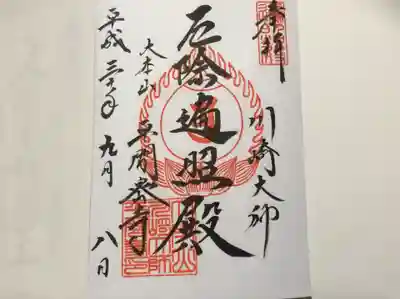 奉拝
川崎大師
厄除遍照殿
大本山
平間寺
平成三十年九月八日